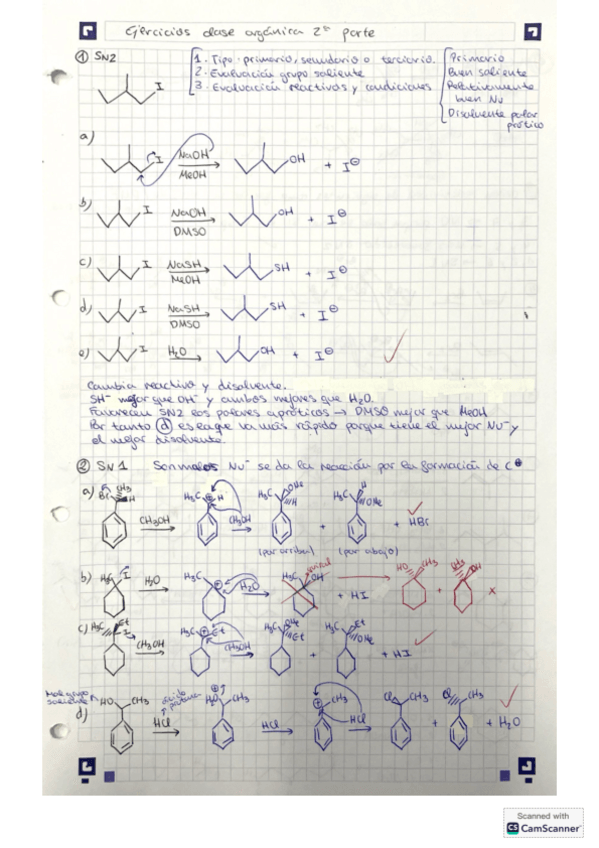 Ejercicios clase orgánica 2ª parte
① SN2
1. Tipo: primario, secundario o terciario.
2. Evaluación grupo saliente
3. Evaluación reactivos y condiciones
Primario
Buen saliente
Relativamente
buen Nu
Disolvente polar
prótico
I
a)
I NaOH OH + I⊖
MeOH
b)
I NaOH OH + I⊖
DMSO
c)
I NaSH SH + I⊖
MeOH
d)
I NaSH SH + I⊖
DMSO
e)
I H₂O OH + I⊖
Cambia reactivo y disolvente.
SH⁻ mejor que OH⁻ y ambos mejores que H₂O.
Favorecen SN2 los polares apróticos → DMSO mejor que MeOH
Por tanto ⓓ es la que va más rápido porque tiene el mejor Nu⁻ y
el mejor disolvente.
② SN1 Son malos Nu⁻ se da la reacción por la formación de C⊕
a) Br CH₃ H H₃C ⊕ H H₃C OMe H H₃C H OMe
CH₃OH CH₃OH + + HBr
(por arriba) (por abajo)
b) H₃C I H₂O H₃C ⊕ H₂O H₃C OH + HI HO CH₃ + CH₃ OH
c) H₃C Et I CH₃OH H₃C ⊕ Et CH₃OH H₃C OMe Et + H₃C Et OMe + HI
Mal grupo
saliente
HO CH₃ ácido
protona H₂O⊕ CH₃ ⊕ CH₃ Cl CH₃ Cl CH₃
d) HCl HCl HCl + + H₂O
Scanned with
CS CamScanner